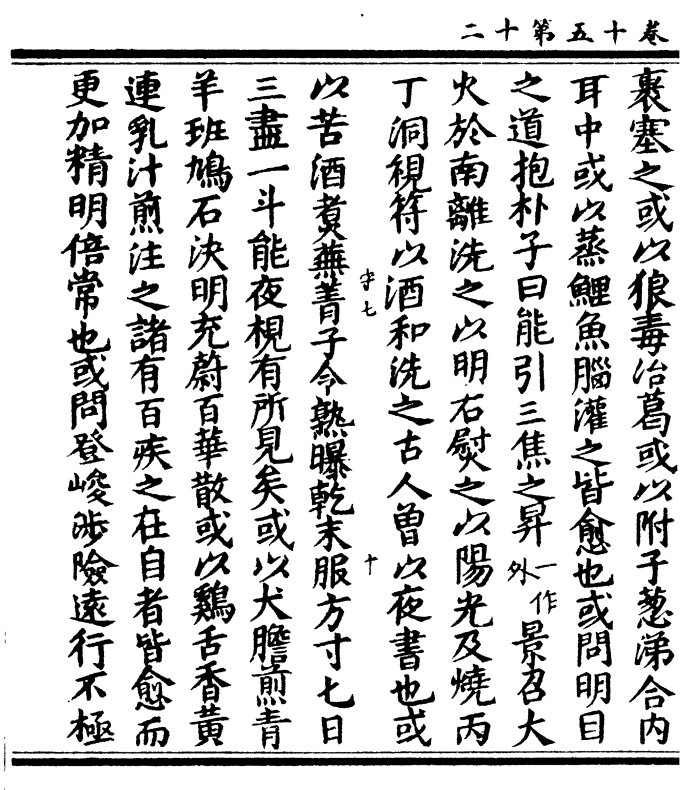 卷十五第十二
裹塞之或以狼毒冶葛或以附子葱涕合内
耳中或以蒸鯉魚腦灌之皆愈也或問明目
之道抱朴子曰能引三焦之昇一作外景召大
火於南離洗之以明石熨之以陽光及燒丙
丁洞視符以酒和洗之古人曾以夜書也或
以苦酒煑蕪菁子令熟曝乾末服方寸七日
字七
十
三盡一斗能夜視有所見矣或以犬膽煎青
羊班鳩石決明充蔚百華散或以鷄舌香黄
連乳汁煎注之諸有百疾之在自者皆愈而
更加精明倍常也或問登峻涉險遠行不極